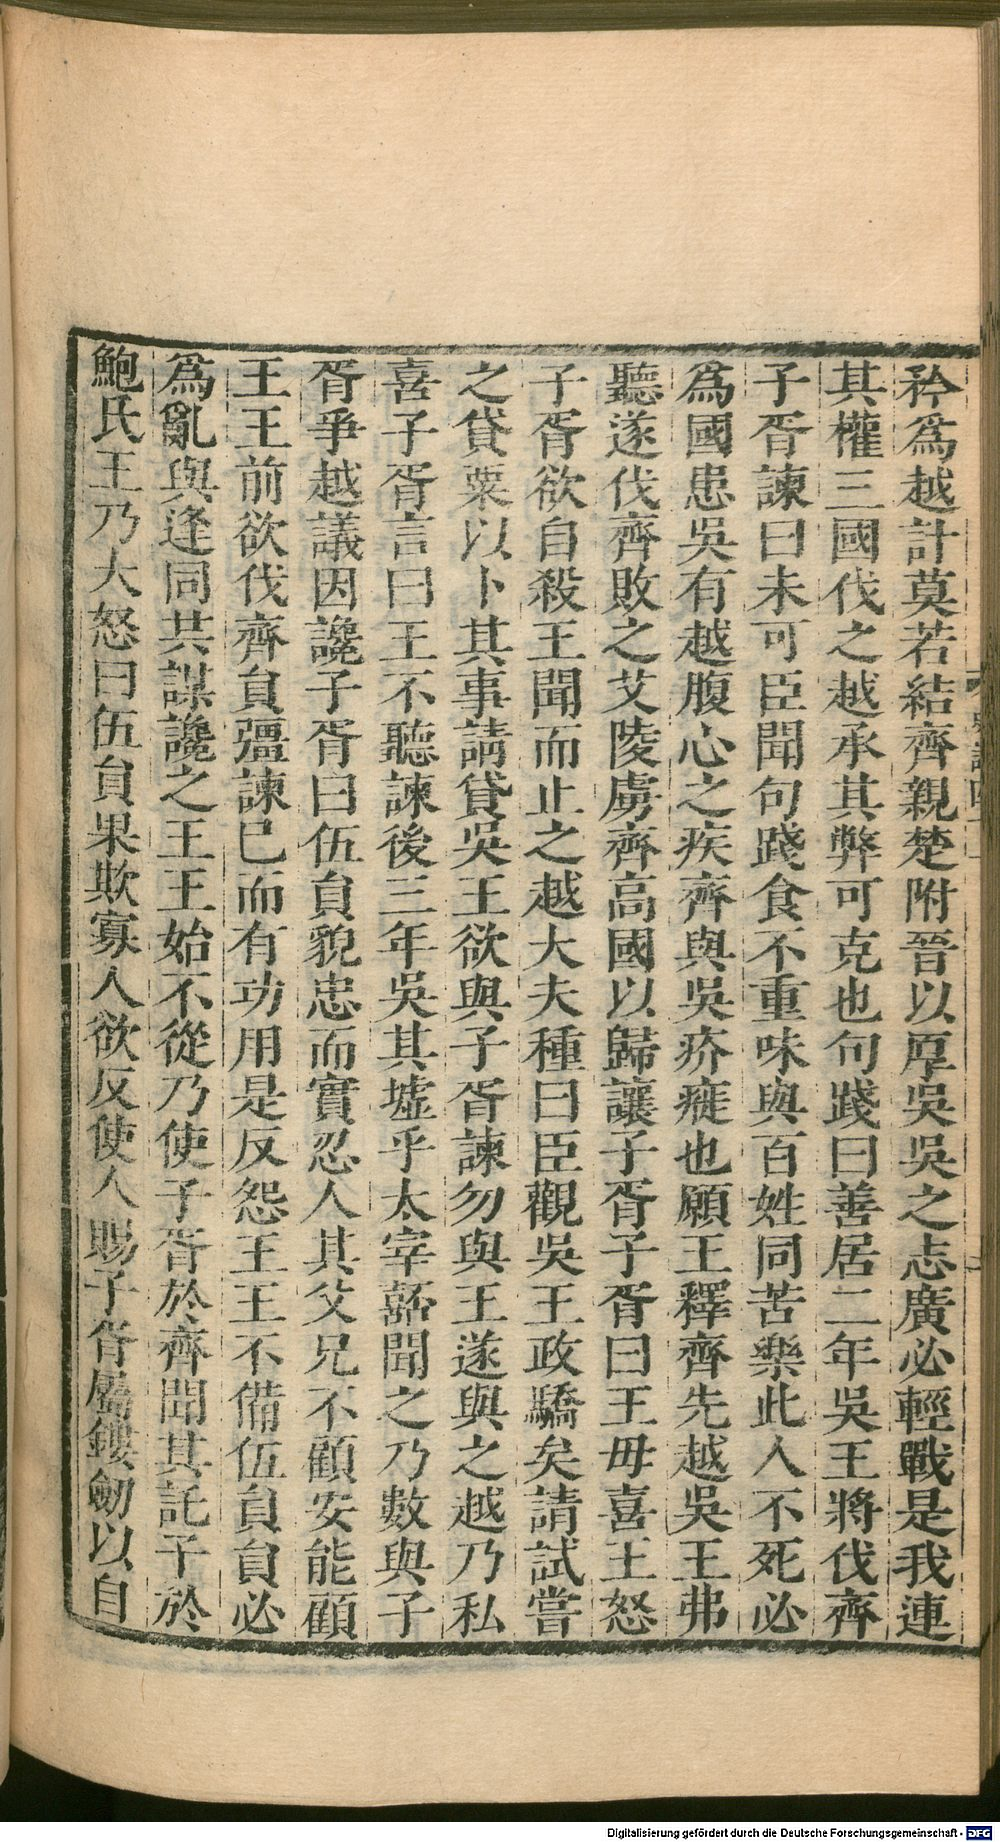 矜爲越計莫若結齊親楚附晉以厚吳吳之志廣必輕戰是我連
其權三國伐之越承其弊可克也句踐曰善居二年吳王將伐齊
子胥諫曰未可臣聞句踐食不重味與百姓同苦樂此人不死必
爲國患吳有越腹心之疾齊與吳疥癬也願王釋齊先越吳王弗
聽遂伐齊敗之艾陵虜齊高國以歸讓子胥子胥曰王毋喜王怒
子胥欲自殺王聞而止之越大夫種曰臣觀吳王政驕矣請試嘗
之貸粟以卜其事請貸吳王欲與子胥諫勿與王遂與之越乃私
喜子胥言曰王不聽諫後三年吳其墟乎太宰嚭聞之乃數與子
胥爭越議因讒子胥曰伍員貌忠而實忍人其父兄不顧安能顧
王王前欲伐齊員彊諫已而有功用是反怨王王不備伍員員必
爲亂與逢同共謀讒之王王始不從乃使子胥於齊聞其託子於
鮑氏王乃大怒曰伍員果欺寡人欲反使人賜子胥屬鏤劒以自
Digitalisierung gefördert durch die Deutsche Forschungsgemeinschaft - DFG